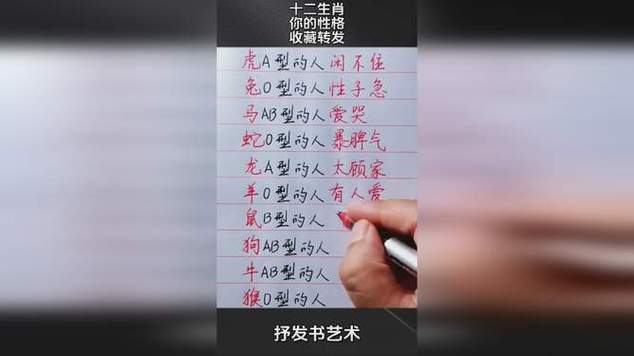 十二生肖
你的性格
收藏转发
虎A型的人 闲不住
兔O型的人 性子急
马AB型的人 爱哭
蛇O型的人 暴脾气
龙A型的人 太顾家
羊O型的人 有人爱
鼠B型的人
狗AB型的人
牛AB型的人
猴O型的人
抒发书艺术